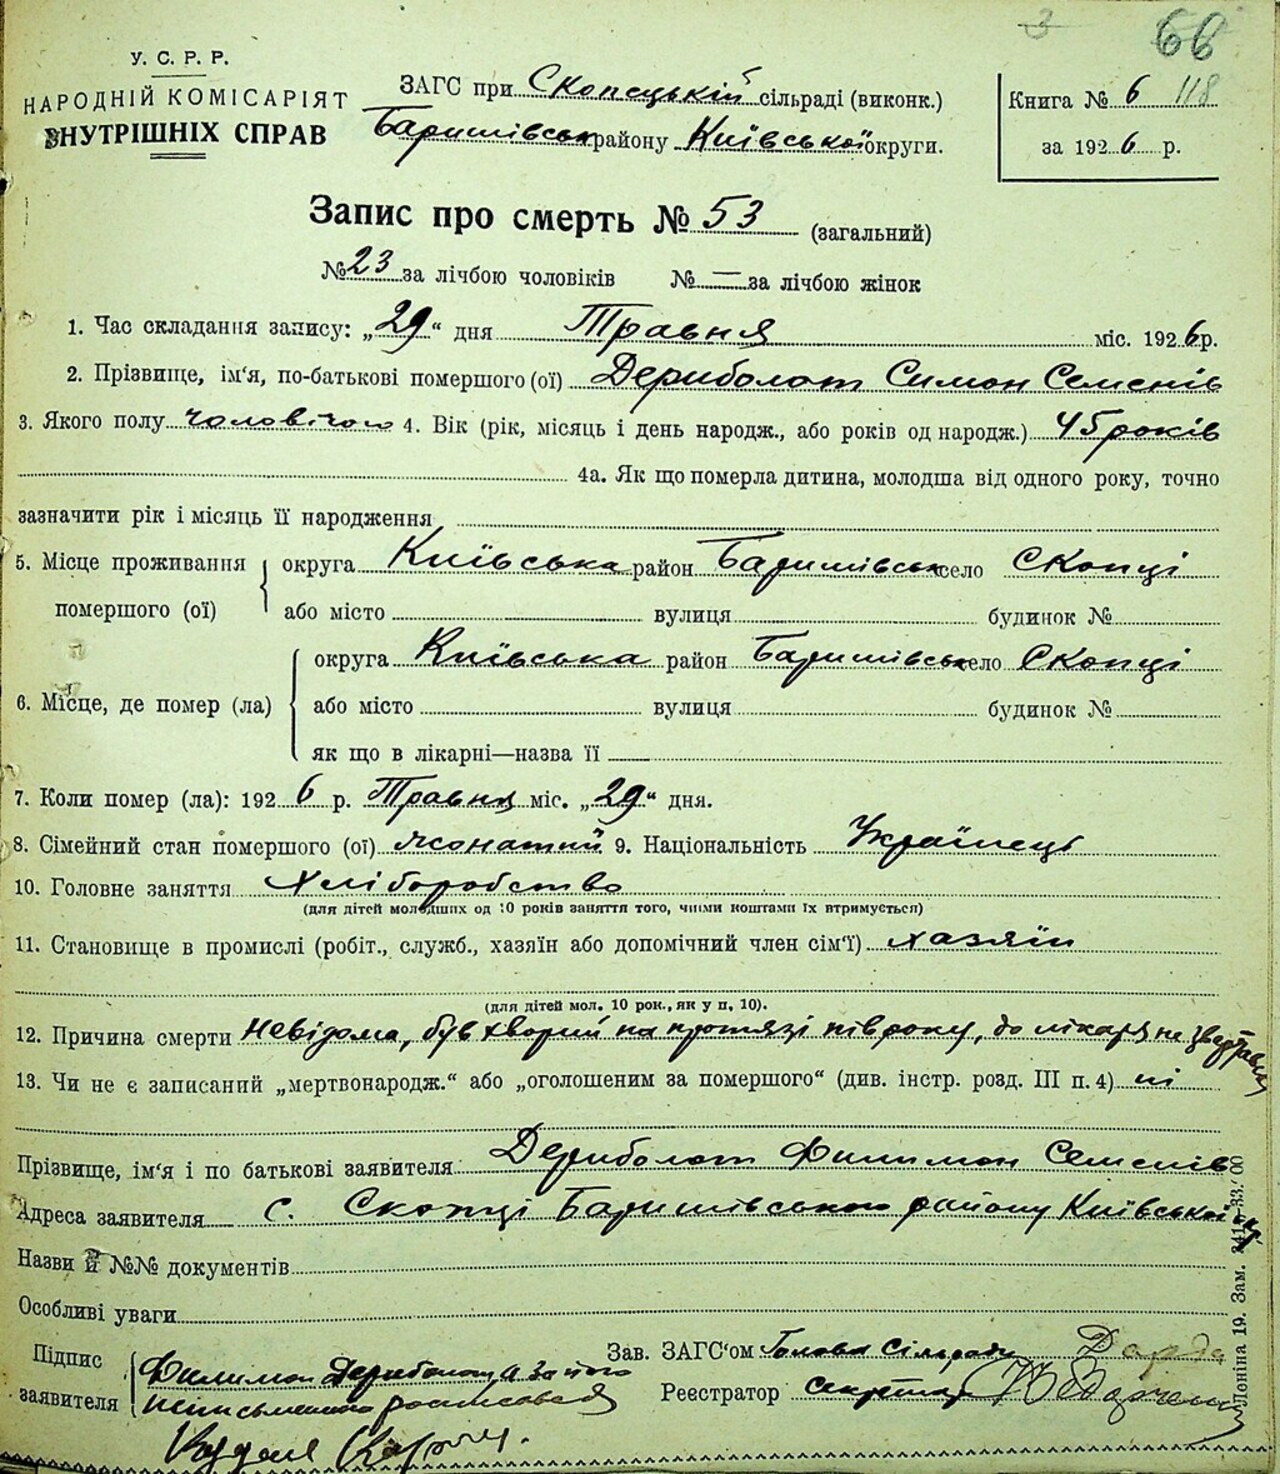 3 66
У. С. Р. Р.
НАРОДНІЙ КОМІСАРІЯТ
ВНУТРІШНІХ СПРАВ
ЗАГС при Скопецькій сільраді (виконк.)
Баришівськ району Київської округи.
Книга № 6 118
за 1926 р.
Запис про смерть № 53 (загальний)
№ 23 за лічбою чоловіків № — за лічбою жінок
1. Час складання запису: „29“ дня Травня міс. 1926 р.
2. Прізвище, ім‘я, по-батькові помершого (ої) Дериболот Симон Семенів
3. Якого полу чоловічого 4. Вік (рік, місяць і день народж., або років од народж.) 45 років
4а. Як що померла дитина, молодша від одного року, точно
зазначити рік і місяць її народження
5. Місце проживання помершого (ої) округа Київська район Баришівськ село Скопці
або місто вулиця будинок №
6. Місце, де помер (ла) округа Київська район Баришівськ село Скопці
або місто вулиця будинок №
як що в лікарні—назва її
7. Коли помер (ла): 1926 р. Травня міс. „29“ дня.
8. Сімейний стан помершого (ої) жонатий 9. Національність Українець
10. Головне заняття Хліборобство
(для дітей молодших од 10 років заняття того, чиїми коштами їх втримується)
11. Становище в промислі (робіт., служб., хазяїн або допомічний член сім‘ї) хазяїн
(для дітей мол. 10 рок., як у п. 10).
12. Причина смерти Невідома, був хворий на протязі пів року, до лікаря не звертався
13. Чи не є записаний „мертвонародж.“ або „оголошеним за помершого“ (див. інстр. розд. III п. 4) ні
Прізвище, ім‘я і по батькові заявителя Дериболот Филимон Семенів
Адреса заявителя с. Скопці Баришівського району Київської окр
Назви й №№ документів
Особливі уваги
Підпис заявителя Филимон Дериболот а за його
неписьменного росписався
Зав. ЗАГС‘ом Голова Сільради
Реєстратор секретар
Леніна 19. Зам.